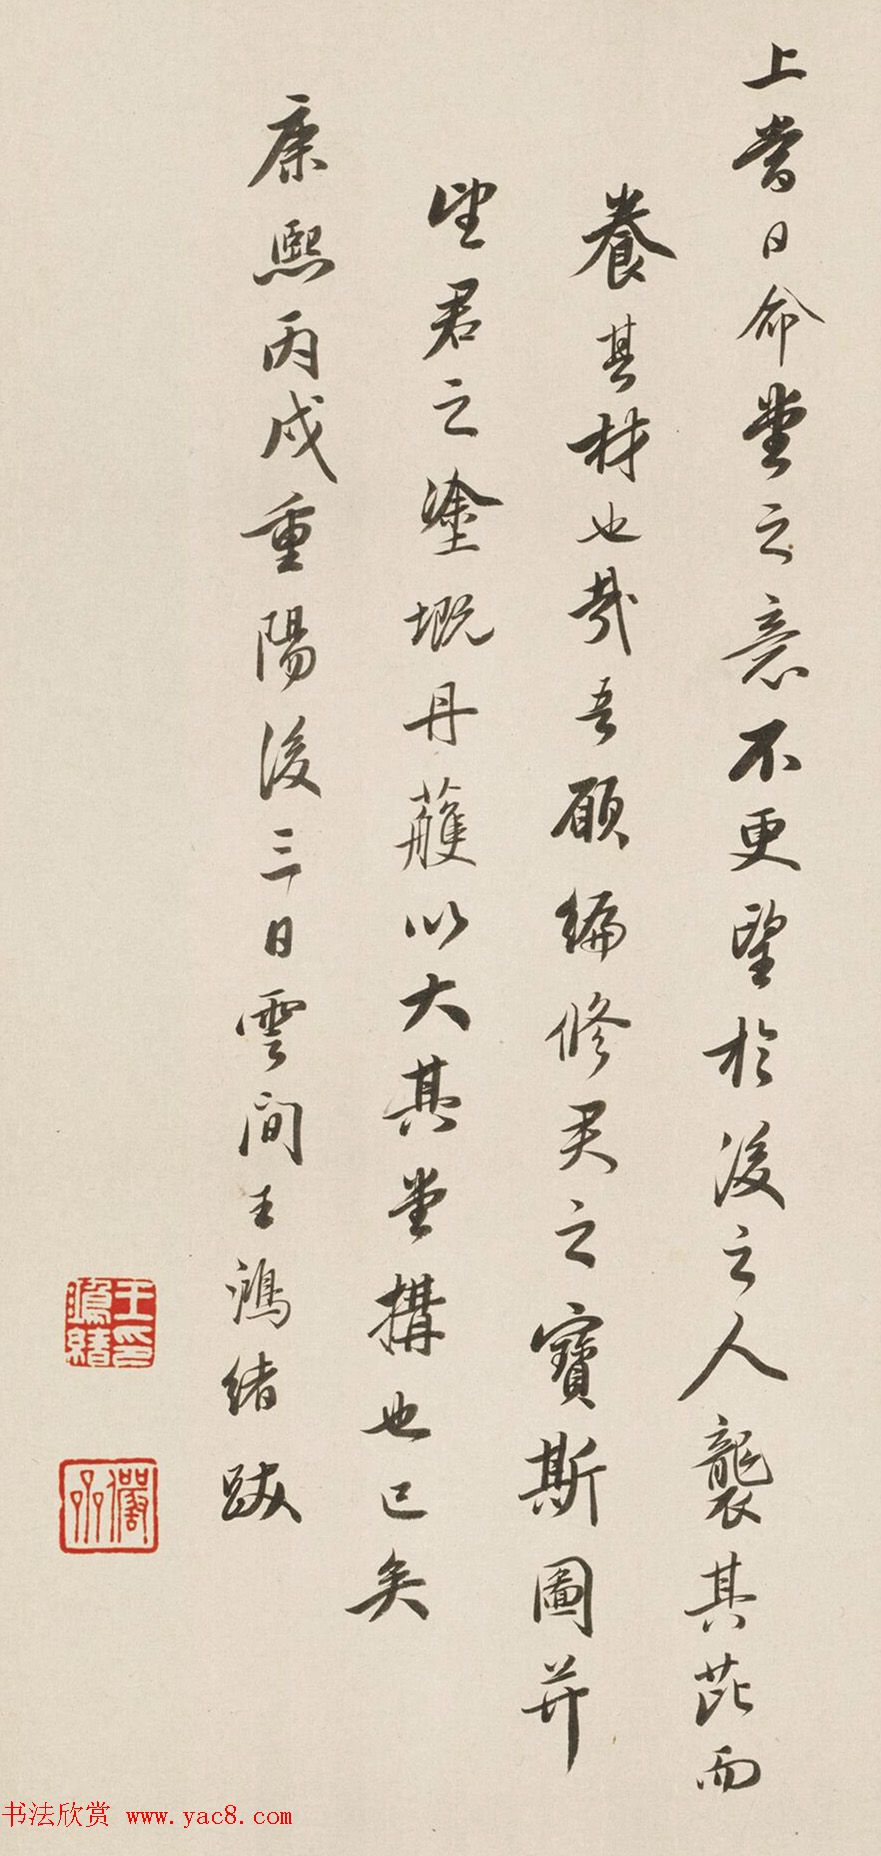 上嘗日命堂之意不更望於後之人襲其芘而
養其材也哉吾願編修君之寶斯圖并
望君之塗墍丹雘以大其堂構也已矣
康熙丙戌重陽後三日雲間王鴻緒跋
王鴻緒印
儼齋
书法欣赏 www.yac8.com